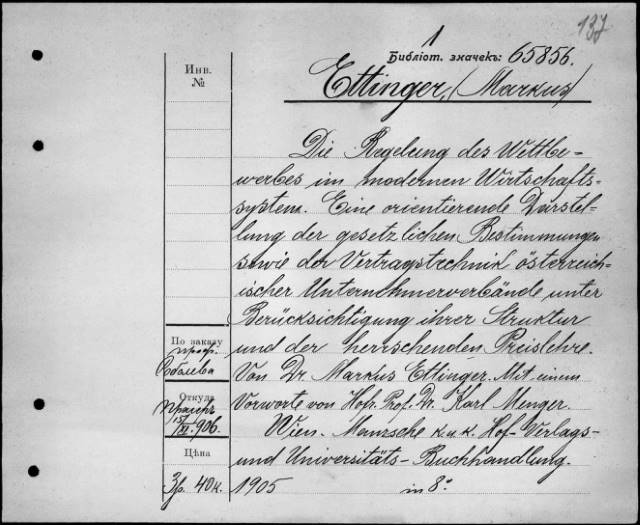 137
1
Библіот. значекъ: 65856.
Ettinger, (Markus)
Инв.
№
Die Regelung des Wettbe-
werbes im modernen Wirtschafts-
system. Eine orientierende Darstel-
lung der gesetzlichen Bestimmungen
sowie der Vertragstechnik österreich-
ischer Unternehmerverbände unter
Berücksichtigung ihrer Struktur
und der herrschenden Preislehre.
Von Dr. Markus Ettinger. Mit einem
Vorworte von Hofr. Prof. Dr. Karl Menger.
Wien. Manzsche k. u. k. Hof-Verlags-
und Universitäts-Buchhandlung.
1905 in 8º
По заказу
проф.
Соболева
Откуда
15/XI 906.
Цѣна
3р. 40к.